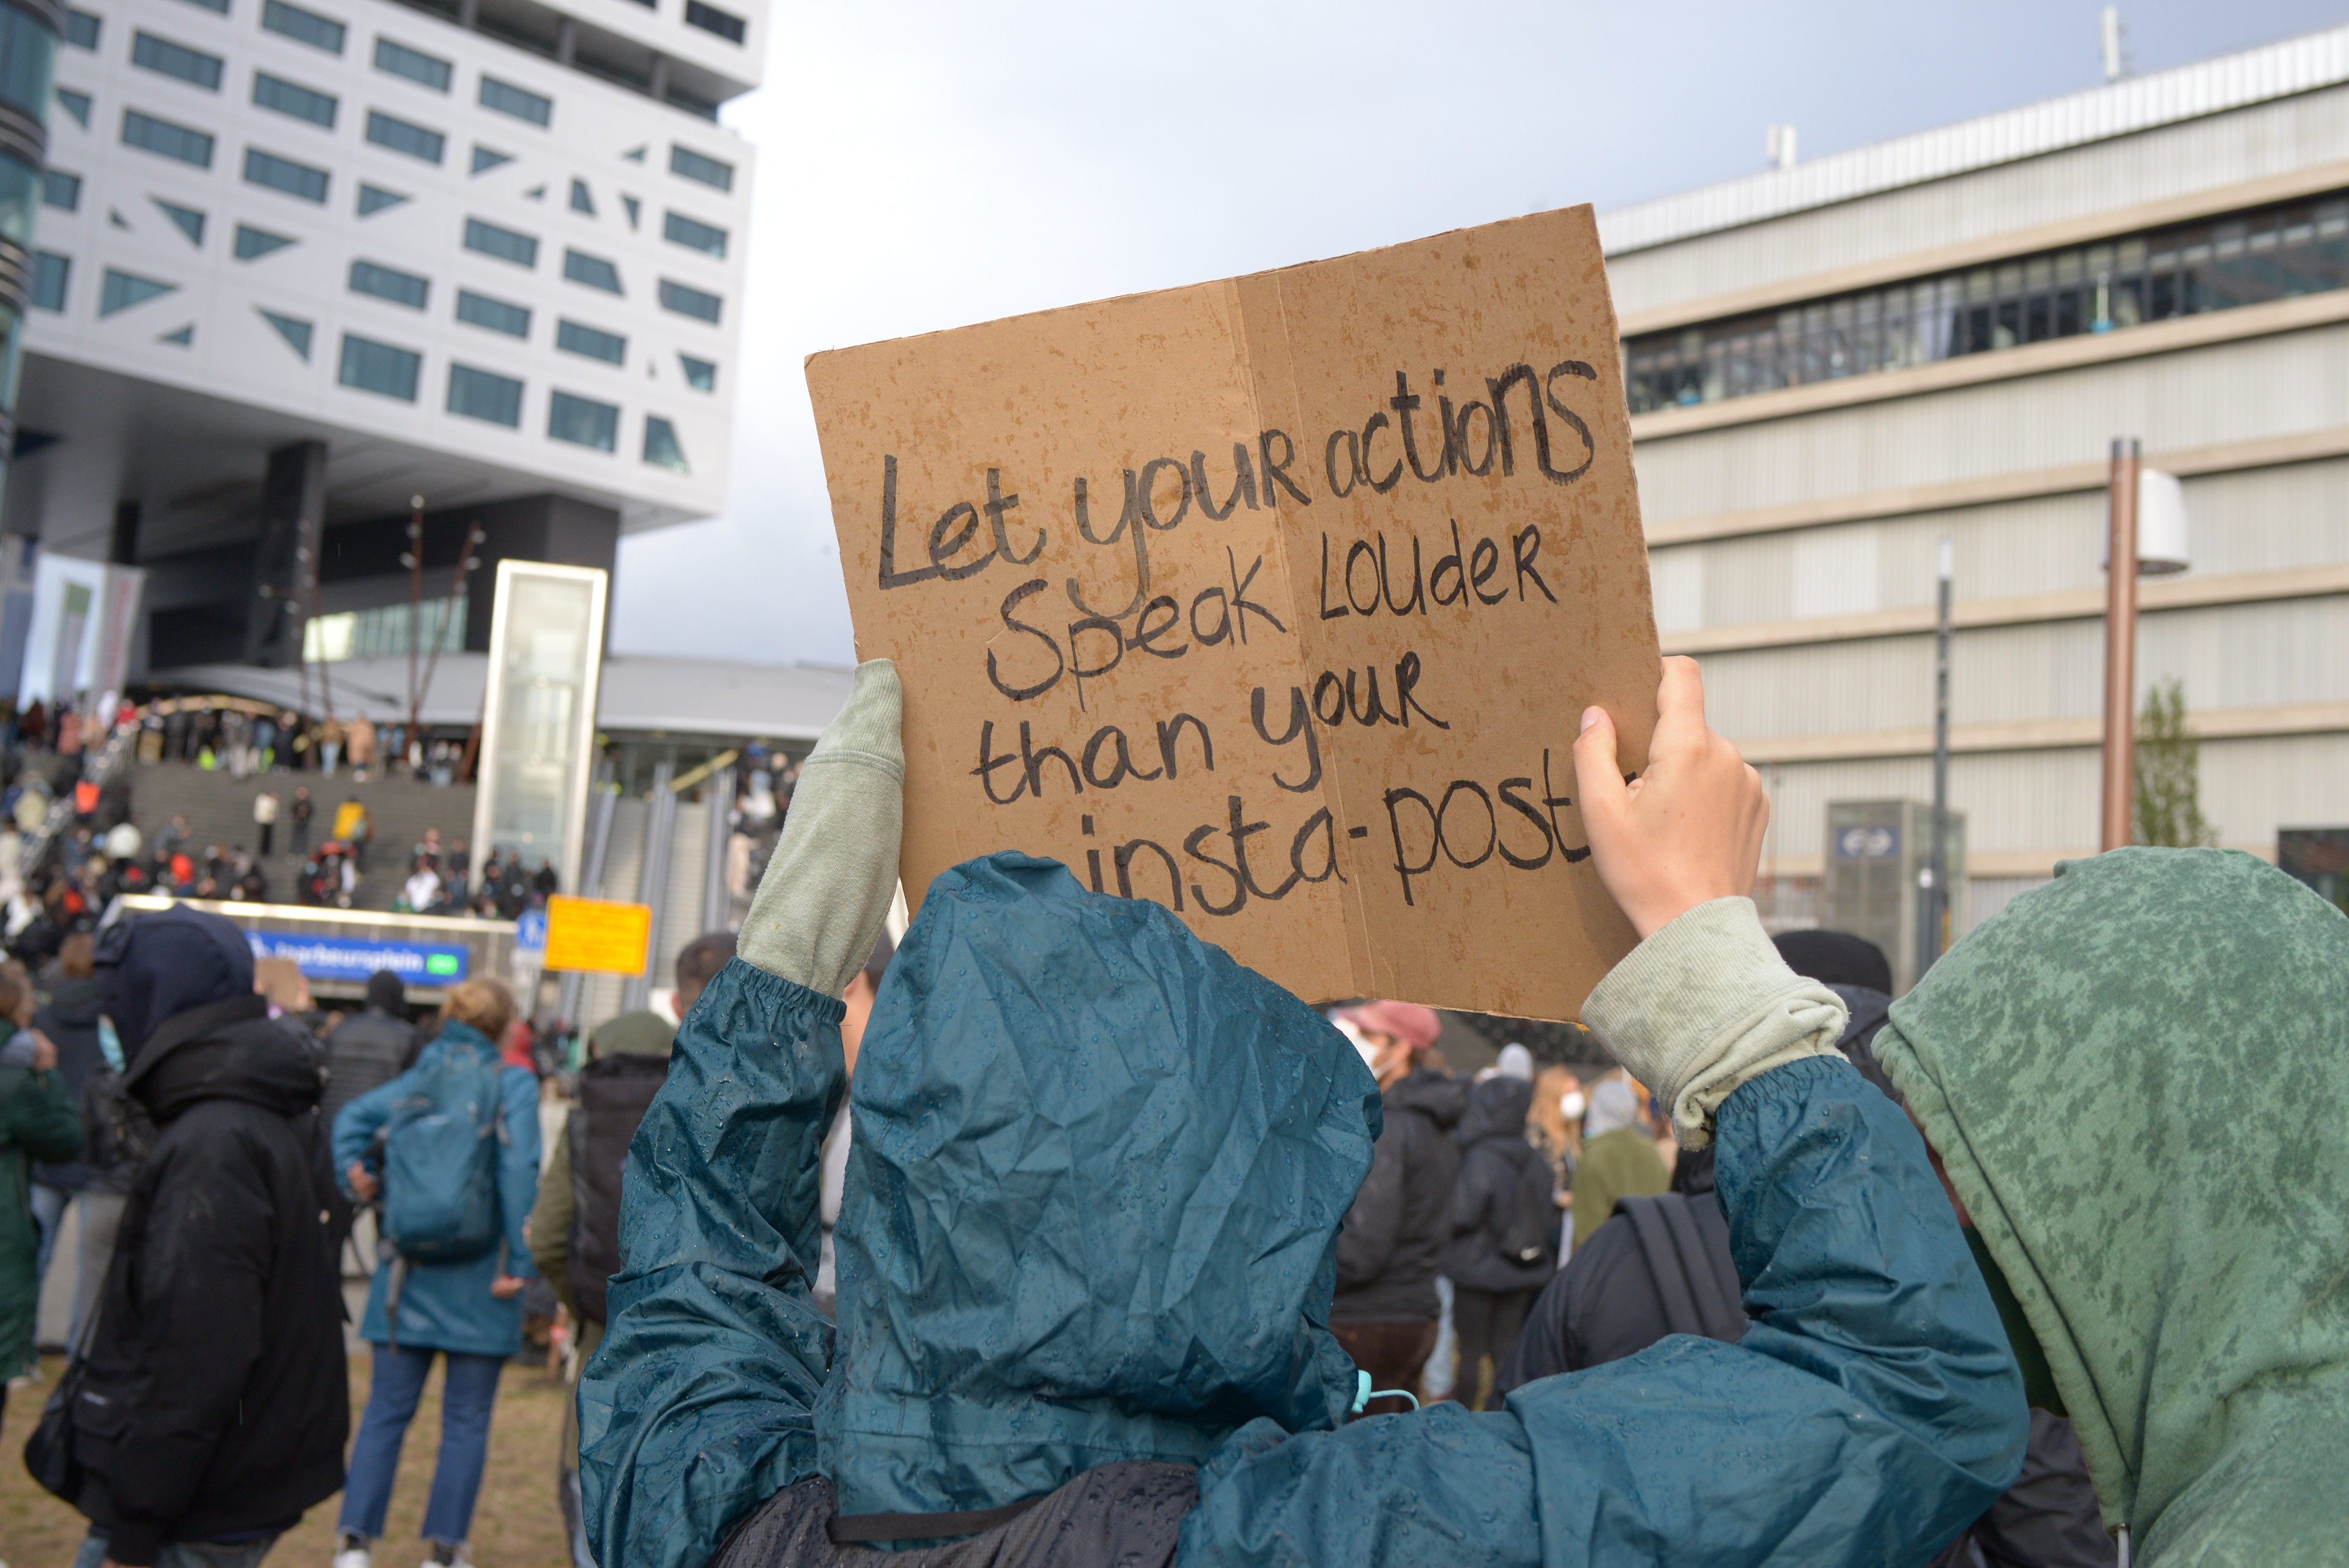 Let your actions
Speak Louder
than your
insta-post
Jaarbeursplein